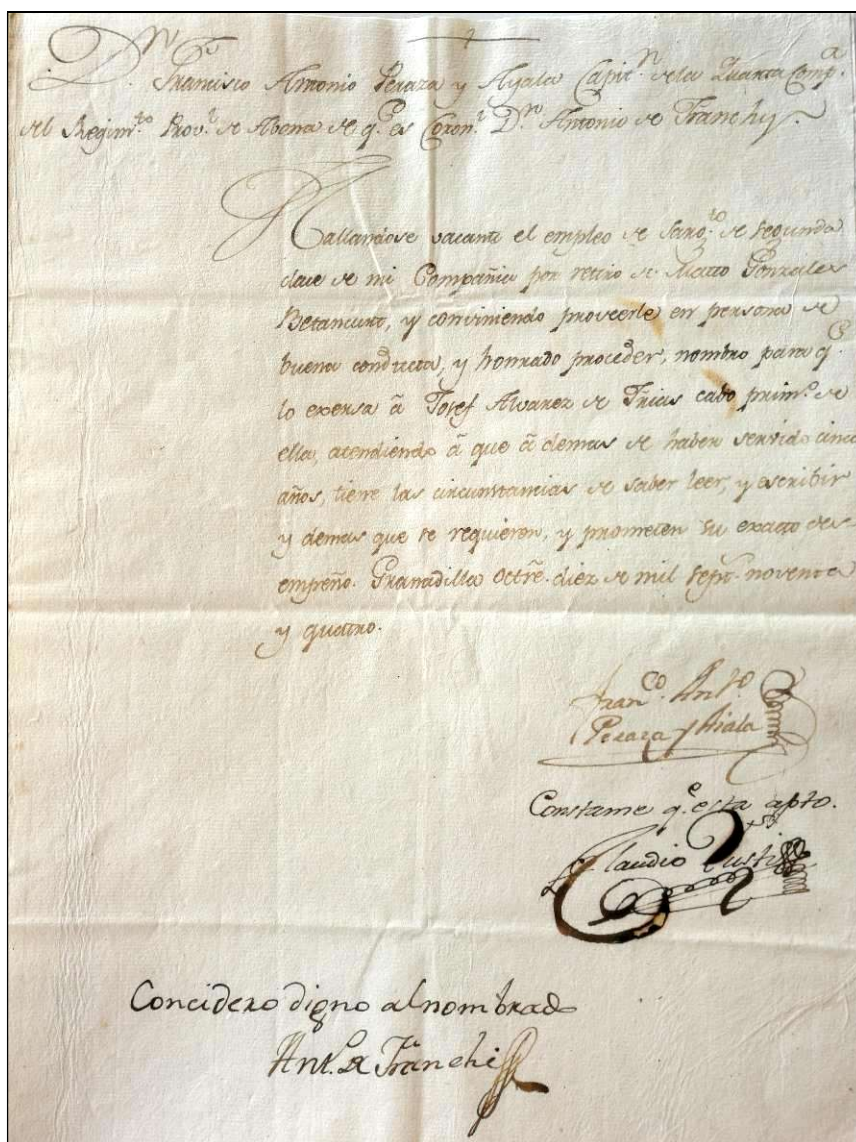 Dn. Francisco Antonio Peraza y Ayala Capitn. de la Quarta Compa.
del Regimto. Provl. de Abona de qe. es Coronl. Dn. Antonio de Franchy
Hallandose vacante el empleo de Sargto. de segunda
clase de mi Compañia por retiro de Matto Gonzales
Betancurt, y conviniendo proveerle en persona de
buena conducta, y honrado proceder, nombro para qe.
lo exersa â Josef Alvarez de Frias cabo primo. de
ella, atendiendo â que â demas de haber servido cinco
años, tiene las circunstancias de saber leer, y escribir
y demas que se requieren, y prometen su exacto des-
empeño. Granadilla Octre. diez de mil septs. noventa
y quatro.
Franco. Anto.
Peraza y Aiala
Constame qe. esta apto.
Claudio
Concidero digno al nombrado
Anto. de Franchi